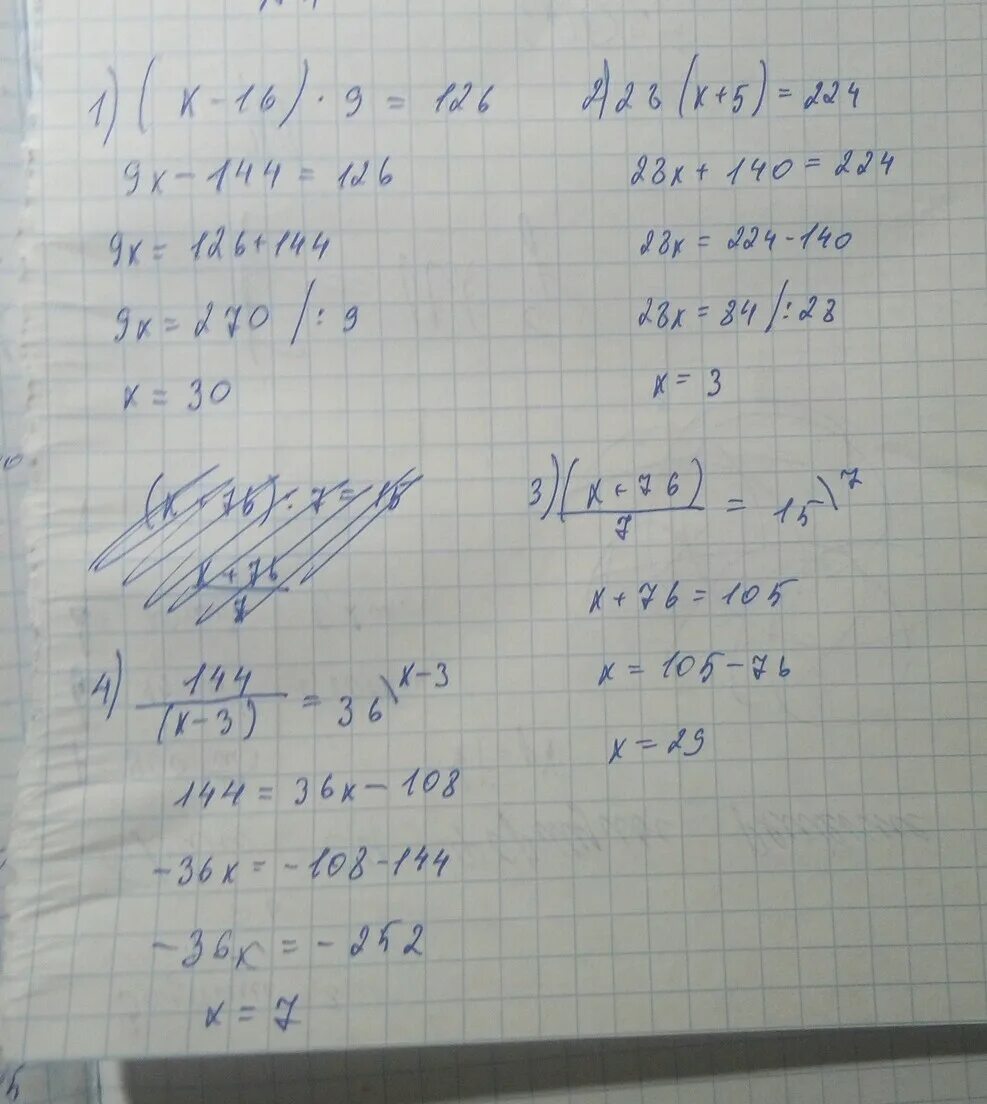 1) (x - 16) · 9 = 126
9x - 144 = 126
9x = 126 + 144
9x = 270 /: 9
x = 30
2) 28 (x + 5) = 224
28x + 140 = 224
28x = 224 - 140
28x = 84 /: 28
x = 3
(x + 76) : 7 = 15
x + 76
7
3) (x + 76)
7
= 15\7
x + 76 = 105
x = 105 - 76
x = 29
4) 144
(x - 3)
= 36\x - 3
144 = 36x - 108
-36x = -108 - 144
-36x = -252
x = 7